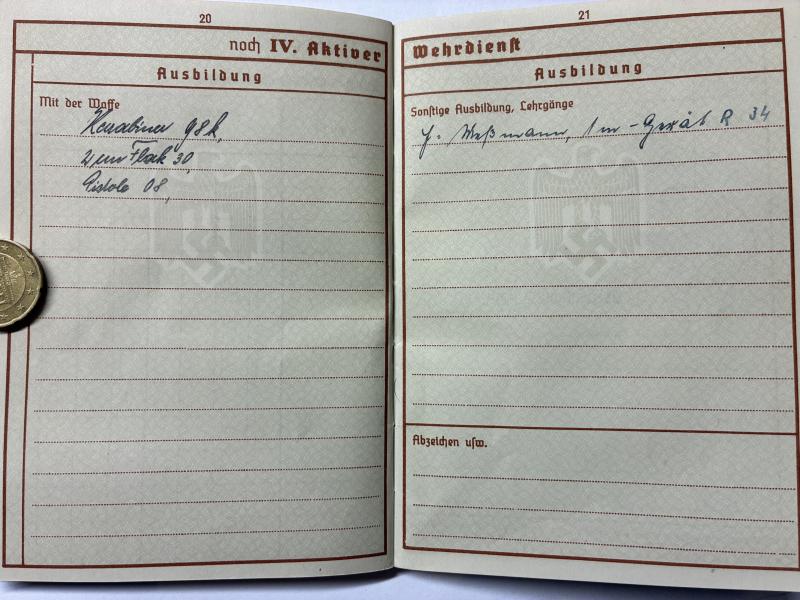 20
noch IV. Aktiver
Ausbildung
Mit der Waffe
Karabiner 98k,
2 cm Flak 30,
Pistole 08,
21
Wehrdienst
Ausbildung
Sonstige Ausbildung, Lehrgänge
E-Meßmann, 1m-Gerät R 34
Abzeichen usw.